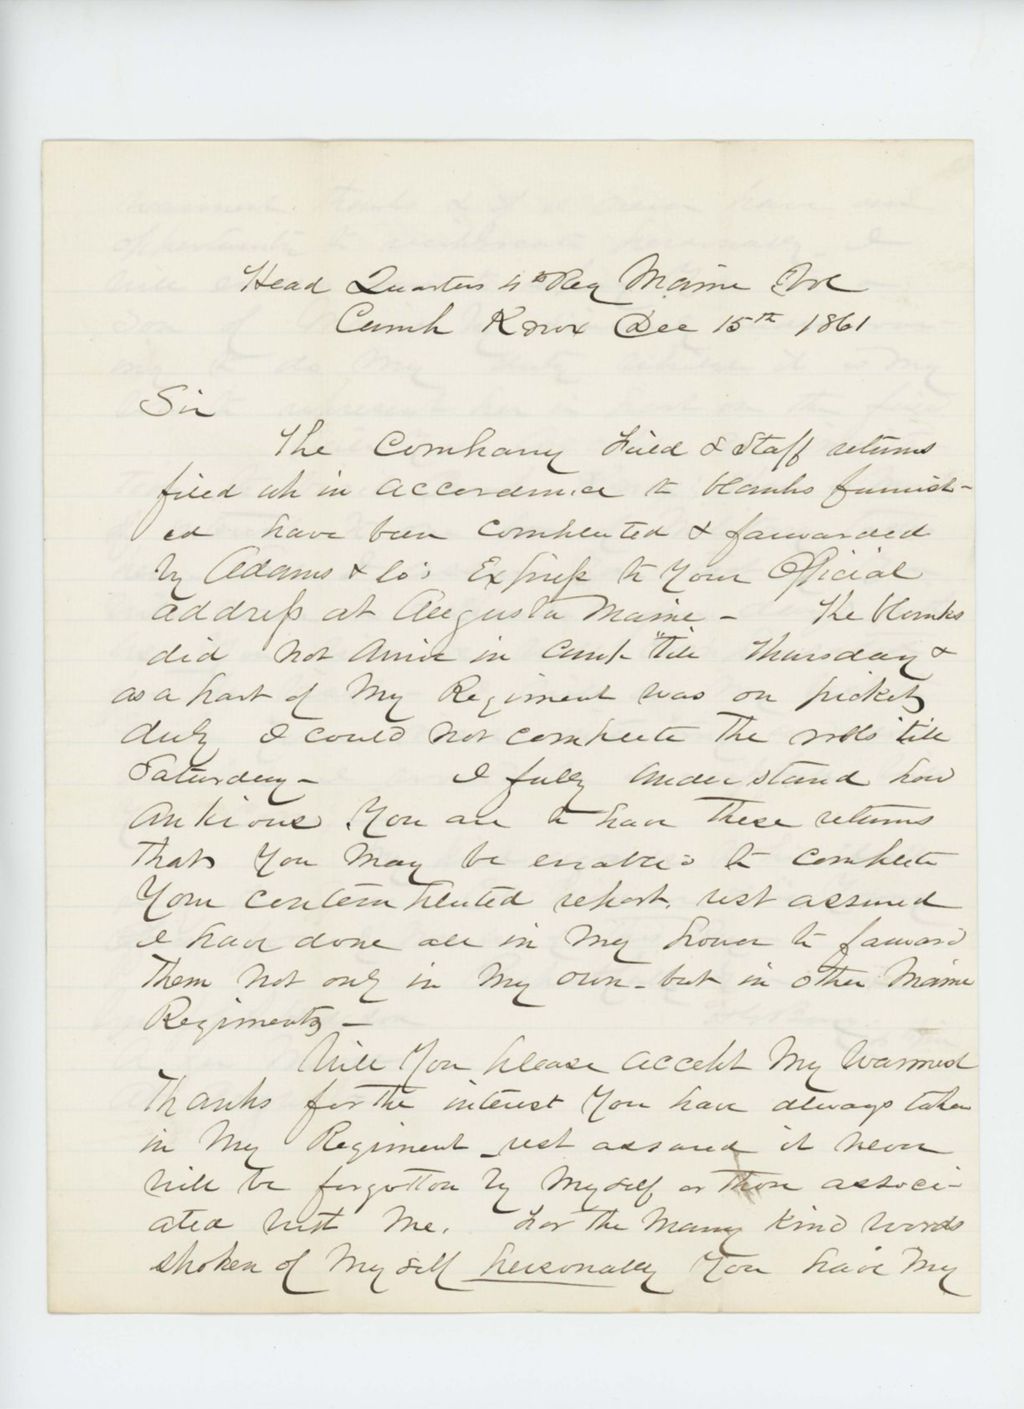 Head Quarters 4th Reg Maine Vol
Camp Knox Dec 15th 1861
Sir
The Company Field & Staff returns
filed up in accordance to blanks furnish-
ed have been completed & forwarded
by Adams & Co's Express to your Official
address at Augusta Maine - The blanks
did not arive in camp till Thursday &
as a part of my Regiment was on picket
duty I could not complete the rolls till
Saturday - I fully understand how
anxious you are to have these returns
that you may be enabled to complete
your contemplated report, rest assured
I have done all in my power to forward
them not only in my own - but in other Maine
Regiments -
Will you please accept my warmest
thanks for the interest you have always taken
in my Regiment - rest assured it never
will be forgotton by myself or those associ-
ated with me. For the many kind words
spoken of myself personally you have my